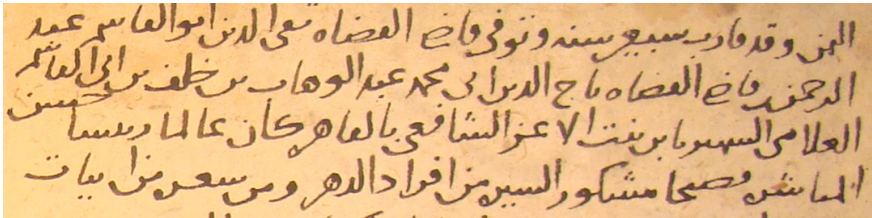 اليمن وقد قارب سبعين سنه وتوفى قاضى القضاه تقى الدين ابو القاسم عبد
الرحمن بن قاضى القضاه تاج الدين ابى محمد عبد الوهاب بن خلف بن ابى القاسم
العلامى الشهير بابن بنت الاعز الشافعى بالقاهره كان عالما رئيسا حسن
المباشره فصيحا مشكور السيره من افراد الدهر ومن شعره من ابيات